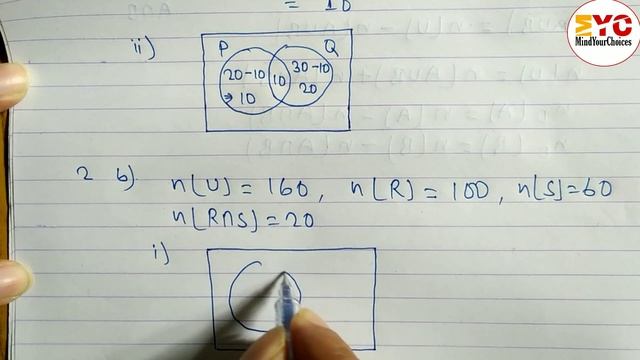 = 10
MYC
MindYourChoices
ii)
P Q
20-10 10 30-10
⇒ 10 20
2 b) n(U) = 160, n(R) = 100, n(S)=60
n(R∩S) = 20
i)